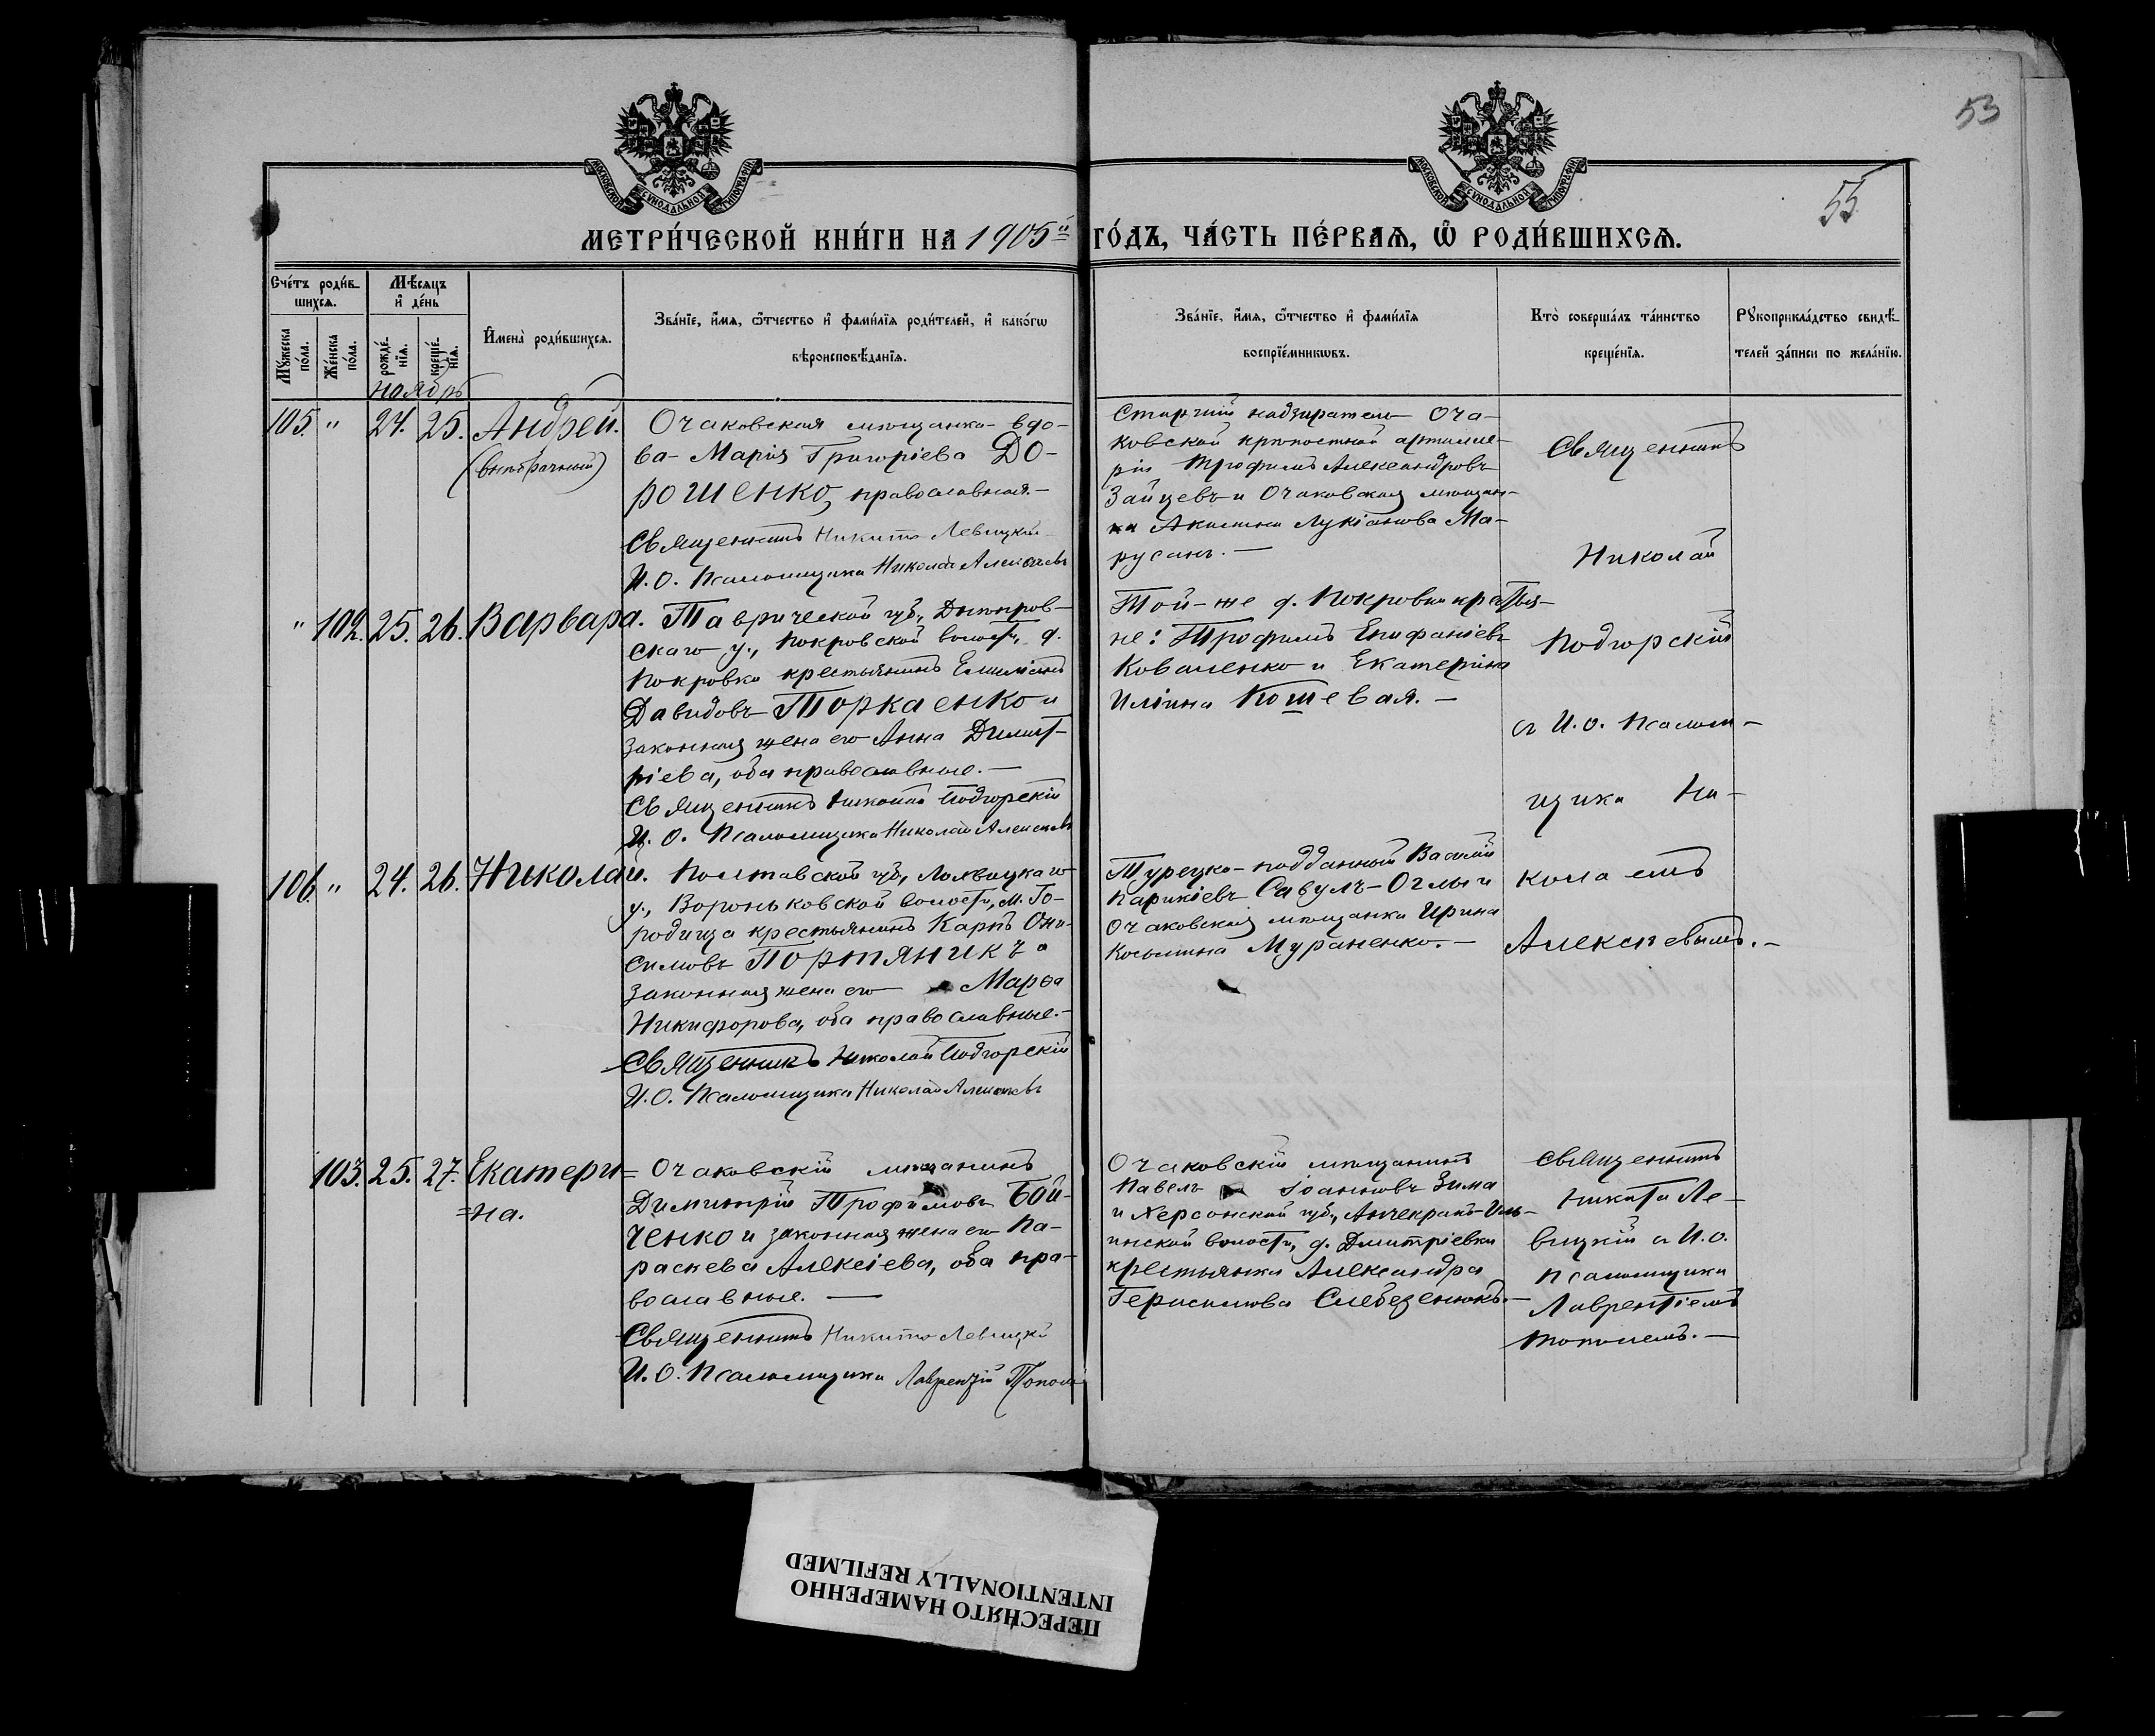 53
55
МОСКОВСКОЙ СѴНОДАЛЬНОЙ ТИПОГРАФІИ
МОСКОВСКОЙ СѴНОДАЛЬНОЙ ТИПОГРАФІИ
МЕТРИ́ЧЕСКОЙ КНИ́ГИ НА 1905й ГО́ДЪ, ЧА́СТЬ ПЕ́РВАѦ, Ѿ РОДИ́ВШИХСѦ.
Сче́тъ роди́в-
шихсѧ.
Мꙋ́жеска по́ла.
Же́нска по́ла.
Мѣ́сѧцъ
и҆ де́нь
рожде́-
нїѧ.
креще́-
нїѧ.
И҆мена̀ роди́вшихсѧ.
Зва́нїе, и҆́мѧ, ѻ҆́тчество и҆ фами́лїѧ роди́телей, и҆ како́гѡ
вѣроисповѣ́данїѧ.
Зва́нїе, и҆́мѧ, ѻ҆́тчество и҆ фами́лїѧ
воспрїе́мникѡвъ.
Кто̀ соверша́лъ та́инство
креще́нїѧ.
Рꙋкоприкла́дство свидѣ́-
телей за́писи по жела́нїю.
ноябрь
105. " 24. 25. Андрей.
(внѣбрачный)
Очаковская мѣщанка вдо-
ва Марія Григоріева До-
рошенко, православная.-
Священникъ Никита Левицкій
И. О. Псаломщика Николай Алексѣевъ
Старшій надзиратель Оча-
ковской крѣпостной артилле-
ріи Трофимъ Александровъ
Зайцевъ и Очаковская мѣщан-
ка Акилина Лукіанова Ма-
русанъ.-
" 102. 25. 26. Варвара.
Таврической губ., Днѣпров-
скаго у., Покровской волости, д.
Покровки крестьянинъ Емиліанъ
Давидовъ Торкаенко и
законная жена его Анна Димит-
ріева, оба православные.-
Священникъ Николай Подгорскій
И. О. Псаломщика Николай Алексѣевъ
Той-же д. Покровки крестья-
не: Трофимъ Епифаніевъ
Коваленко и Екатерина
Иліина Кошевая.-
106. " 24. 26. Николай.
Полтавской губ., Лохвицкаго
у., Вороньковской волости, м. Го-
родища крестьянинъ Карпъ Они-
симовъ Портяникъ и
законная жена его Марѳа
Никифорова, оба православные.-
Священникъ Николай Подгорскій
И. О. Псаломщика Николай Алексѣевъ
Турецко-подданный Василій
Карикіевъ Савулъ-Оглы и
Очаковская мѣщанка Ирина
Косьмина Мураненко.-
Священникъ
Николай
Подгорскій
съ И. О. Псалом-
щика Ни-
колаемъ
Алексѣевымъ.-
103. 25. 27. Екатери=
=на.
Очаковскій мѣщанинъ
Димитрій Трофимовъ Бой-
ченко и законная жена его Па-
раскева Алексіева, оба пра-
вославные.-
Священникъ Никита Левицкій
И. О. Псаломщика Лаврентій Тополь
Очаковскій мѣщанинъ
Павелъ Іоанновъ Зима
и Херсонской губ., Анчекракъ-Иль-
инской волости, д. Дмитріевки
крестьянка Александра
Герасимова Слебезенюкъ.-
Священникъ
Никита Ле-
вицкій съ И. О.
Псаломщика
Лаврентіемъ
Тополемъ.-
ПЕРЕСНЯТО НАМЕРЕННО
INTENTIONALLY REFILMED